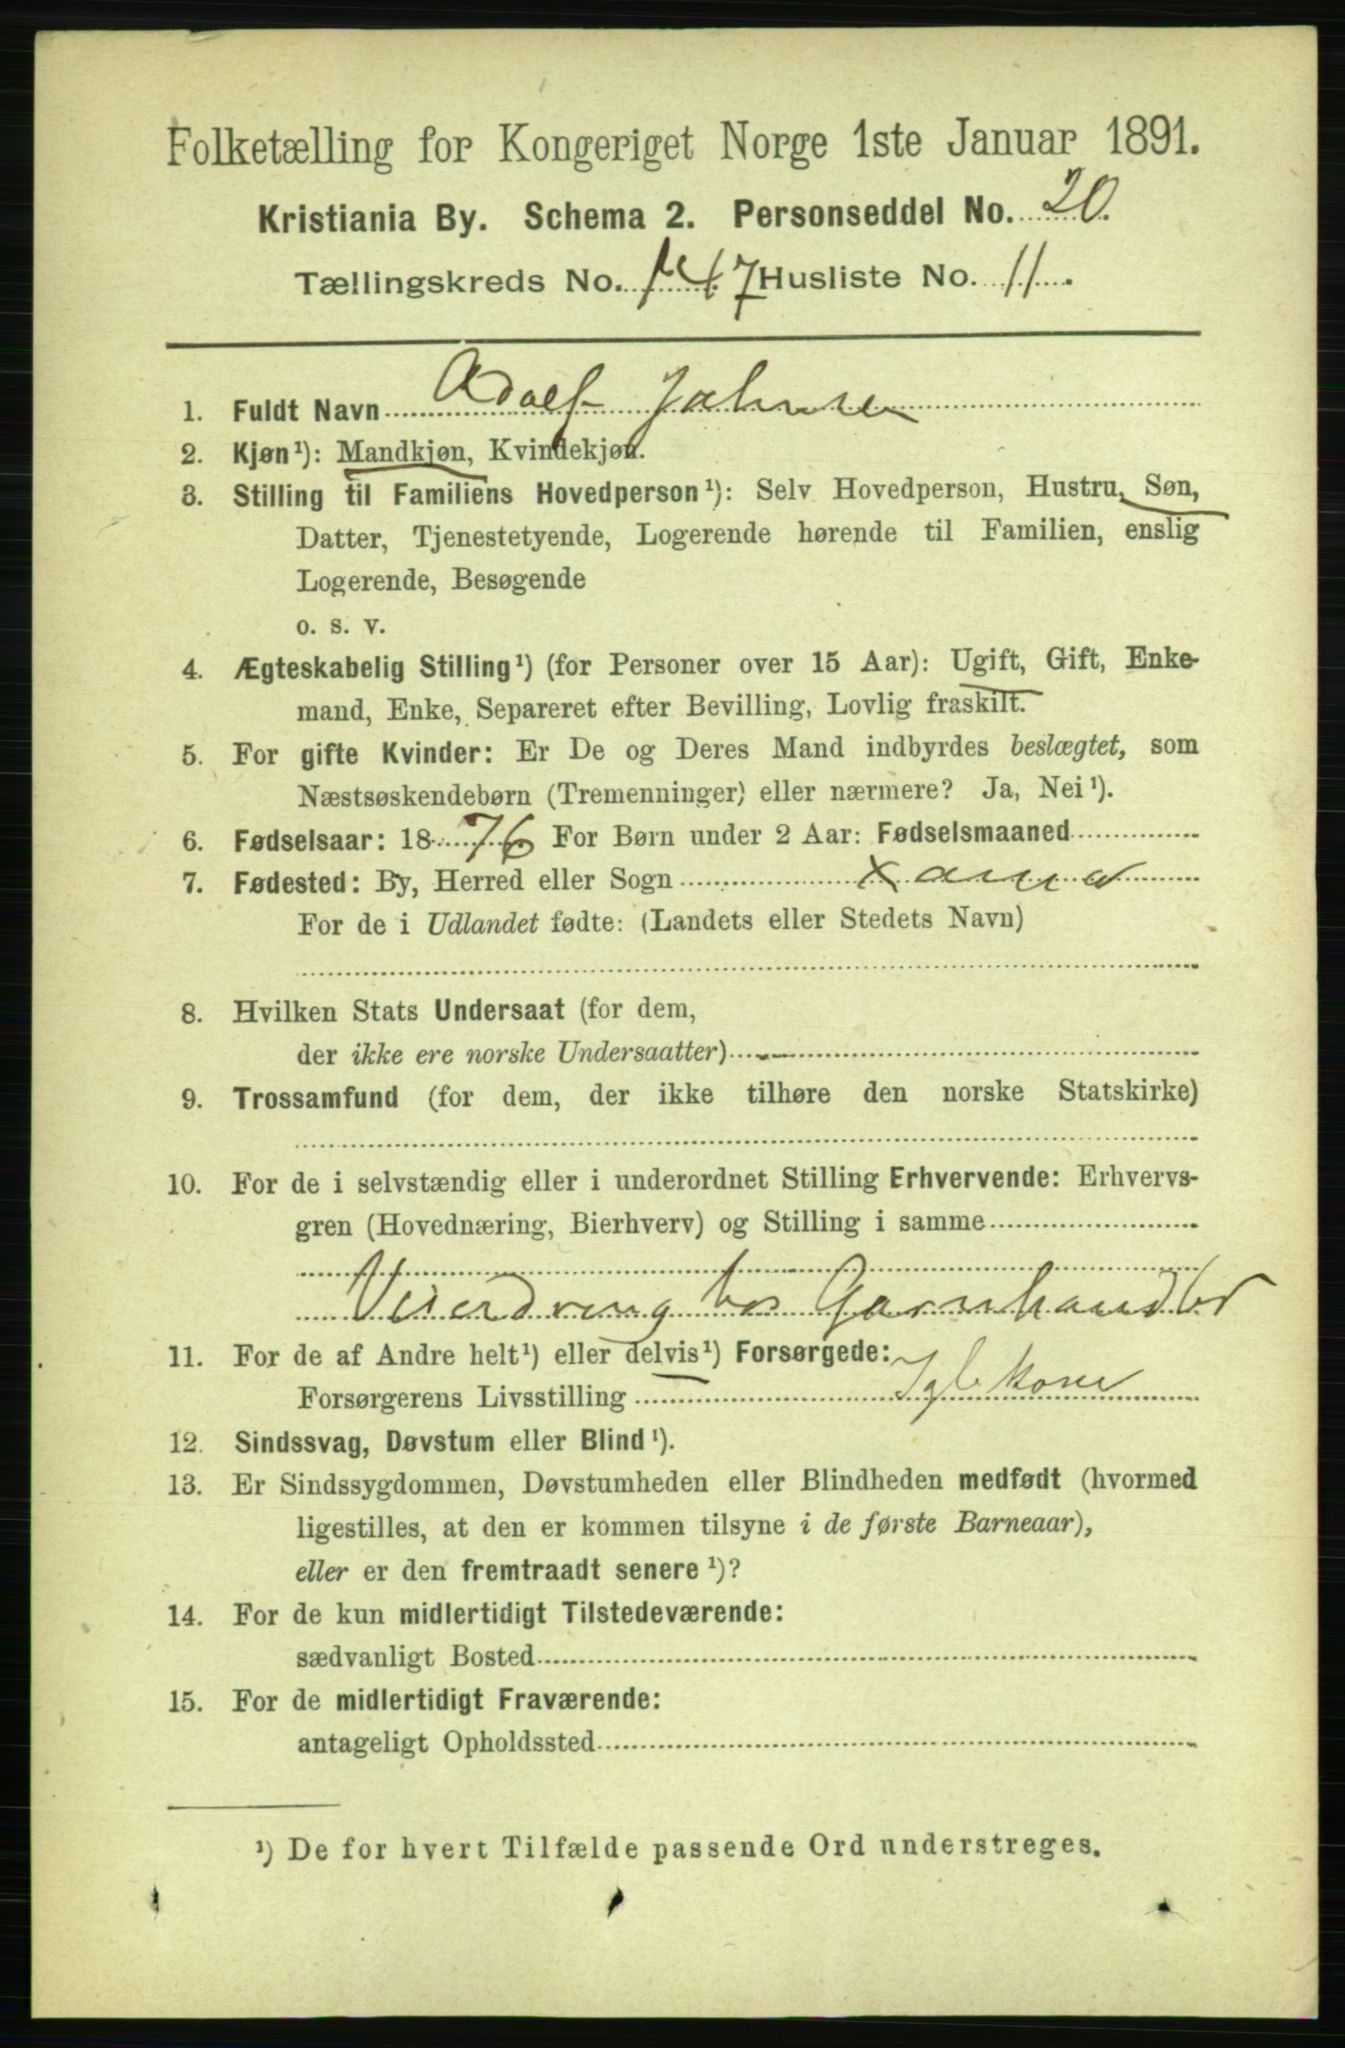 Folketælling for Kongeriget Norge 1ste Januar 1891.
Kristiania By. Schema 2. Personseddel No. 20.
Tællingskreds No. 147 Husliste No. 11.
1. Fuldt Navn Adolf Johnsen
2. Kjøn¹): Mandkjøn, Kvindekjøn.
3. Stilling til Familiens Hovedperson¹): Selv Hovedperson, Hustru, Søn,
Datter, Tjenestetyende, Logerende hørende til Familien, enslig
Logerende, Besøgende
o. s. v.
4. Ægteskabelig Stilling¹) (for Personer over 15 Aar): Ugift, Gift, Enke-
mand, Enke, Separeret efter Bevilling, Lovlig fraskilt.
5. For gifte Kvinder: Er De og Deres Mand indbyrdes beslægtet, som
Næstsøskendebørn (Tremenninger) eller nærmere? Ja, Nei¹).
6. Fødselsaar: 1876 For Børn under 2 Aar: Fødselsmaaned
7. Fødested: By, Herred eller Sogn Xania
For de i Udlandet fødte: (Landets eller Stedets Navn)
8. Hvilken Stats Undersaat (for dem,
der ikke ere norske Undersaatter)
9. Trossamfund (for dem, der ikke tilhøre den norske Statskirke)
10. For de i selvstændig eller i underordnet Stilling Erhvervende: Erhvervs-
gren (Hovednæring, Bierhverv) og Stilling i samme
Visergdreng hos Garnhandler
11. For de af Andre helt¹) eller delvis¹) Forsørgede:
Forsørgerens Livsstilling
12. Sindssvag, Døvstum eller Blind¹).
13. Er Sindssygdommen, Døvstumheden eller Blindheden medfødt (hvormed
ligestilles, at den er kommen tilsyne i de første Barneaar),
eller er den fremtraadt senere¹)?
14. For de kun midlertidigt Tilstedeværende:
sædvanligt Bosted
15. For de midlertidigt Fraværende:
antageligt Opholdssted
¹) De for hvert Tilfælde passende Ord understreges.